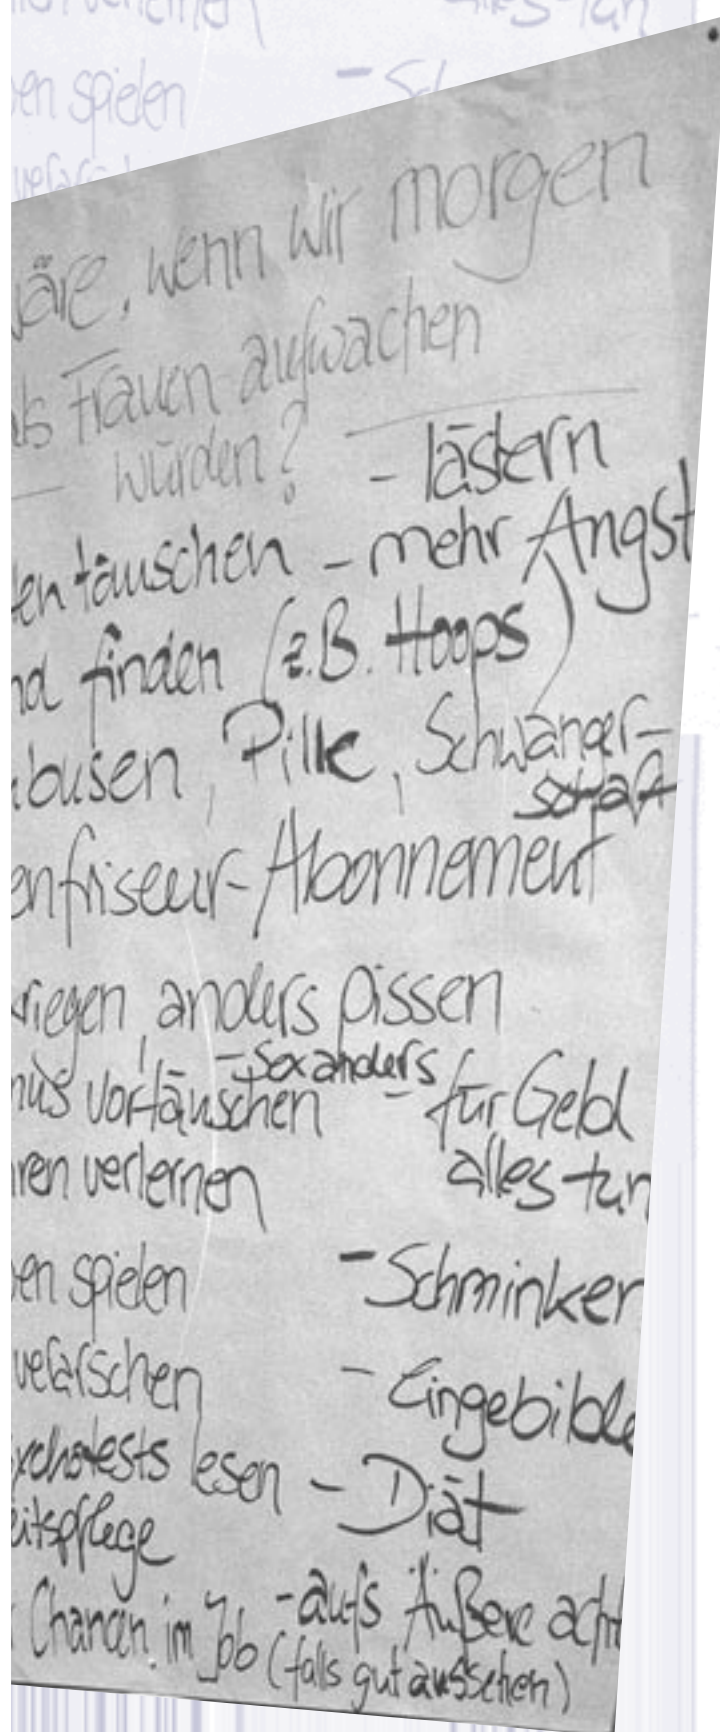 wäre, wenn wir morgen
als Frauen aufwachen
würden? - lästern
en täuschen - mehr Angst
nd finden (z.B. Hoops)
busen, Pille, Schwanger-
schaft
enfriseur-Abonnement
riegen, anders pissen
- Sex anders
mus vortäuschen - für Geld
ren verlernen alles tun
en spielen - Schminken
verarschen - Eingebilde
ychotests lesen - Diät
eitspflege
Chancen im Job - aufs Äußere acht
(falls gut aussehen)